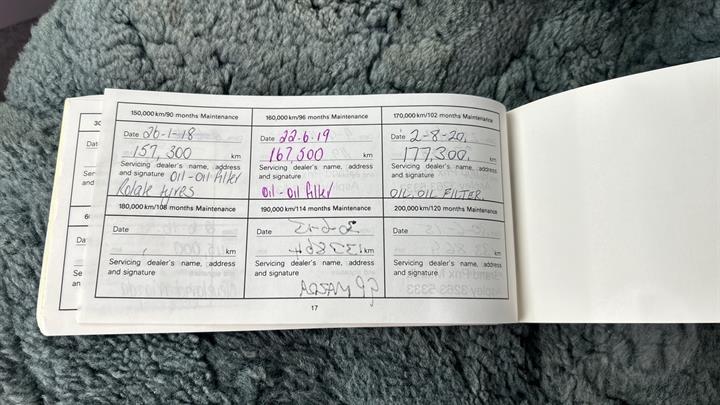 150,000 km/90 months Maintenance
Date 26-1-18
157,300 km
Servicing dealer's name, address
and signature Oil-Oil filter
Rotate tyres
160,000 km/96 months Maintenance
Date 22.6.19
167,500 km
Servicing dealer's name, address
and signature
Oil-Oil filter
170,000 km/102 months Maintenance
Date 2-8-20.
177,300. km
Servicing dealer's name, address
and signature
OIL, OIL FILTER.
180,000 km/108 months Maintenance
Date
km
Servicing dealer's name, address
and signature
190,000 km/114 months Maintenance
Date
km
Servicing dealer's name, address
and signature
200,000 km/120 months Maintenance
Date
km
Servicing dealer's name, address
and signature
17